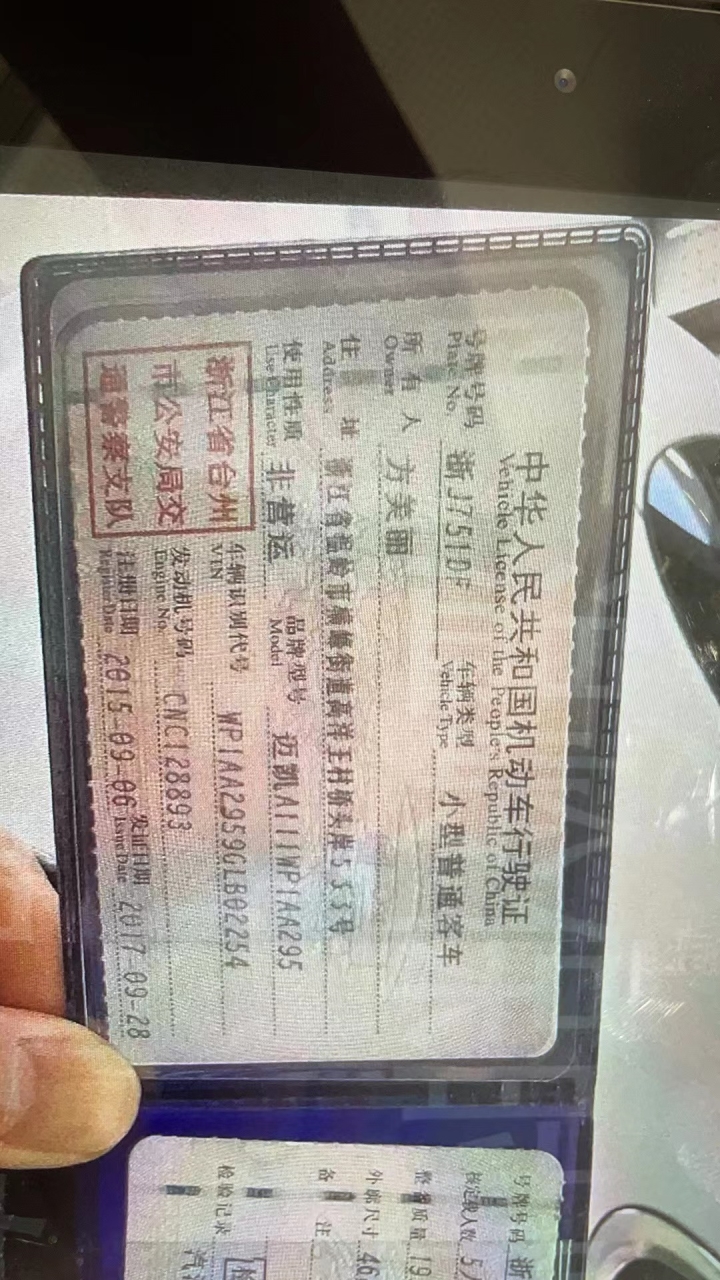 中华人民共和国机动车行驶证
Vehicle License of the People's Republic of China
号牌号码 浙J751DF 车辆类型 小型普通客车
Plate No. Vehicle Type
所有人 方美丽
Owner
住址 浙江省温岭市横峰街道高洋王村桥头岸533号
Address
使用性质 非营运 品牌型号 迈凯A111WP1AA295
Use Character Model
浙江省台州
市公安局交
通警察支队
车辆识别代号 WP1AA2959GLB02254
VIN
发动机号码 CNC128893
Engine No.
注册日期 2015-09-06 发证日期 2017-09-28
Register Date Issue Date
号牌号码 浙
核定载人数 5
整备质量 19
外廓尺寸 46
备注
检验记录